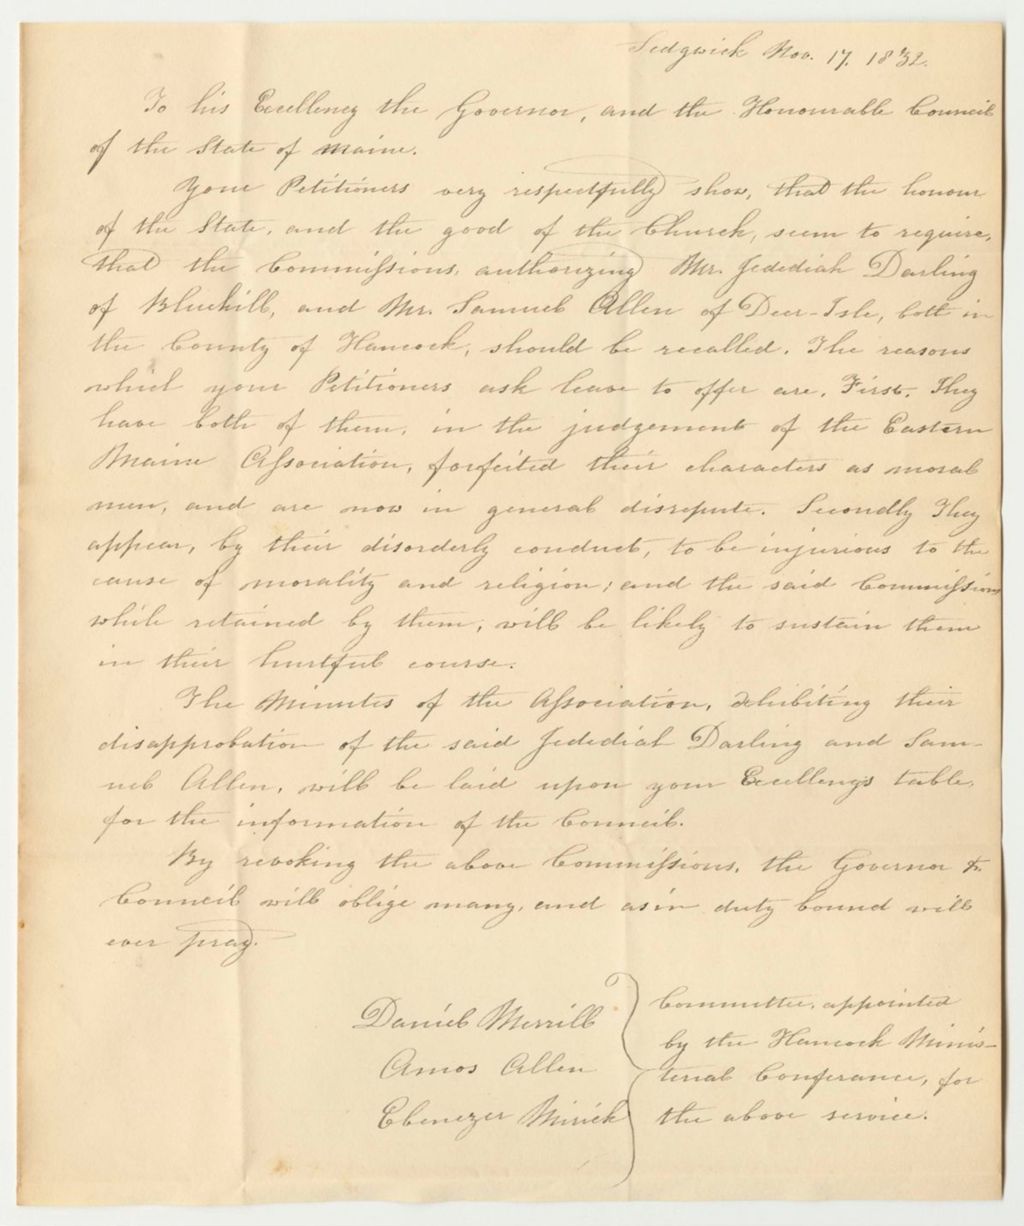 Sedgwick Nov. 17. 1832.
To his Excellency the Governor, and the Honourable Council
of the State of Maine.
Your Petitioners very respectfully show, that the honour
of the State, and the good of the Church, seem to require,
that the Commissions, authorizing Mr. Jedediah Darling
of Bluehill, and Mr. Samuel Allen of Deer-Isle, both in
the County of Hancock, should be recalled. The reasons
which your Petitioners ask leave to offer are, First, They
have both of them, in the judgement of the Eastern
Maine Association, forfeited their characters as moral
men, and are now in general disrepute. Secondly They
appear, by their disorderly conduct, to be injurious to the
cause of morality and religion; and the said Commissions
while retained by them, will be likely to sustain them
in their hurtful course.
The Minutes of the Association, exhibiting their
disapprobation of the said Jedediah Darling and Sam-
uel Allen, will be laid upon your Excellency's table,
for the information of the Council.
By revoking the above Commissions, the Governor &
Council will oblige many, and as in duty bound will
ever pray.
Daniel Merrill
Amos Allen
Ebenezer Mirick
Committee, appointed
by the Hancock Minis-
terial Conferance, for
the above service.